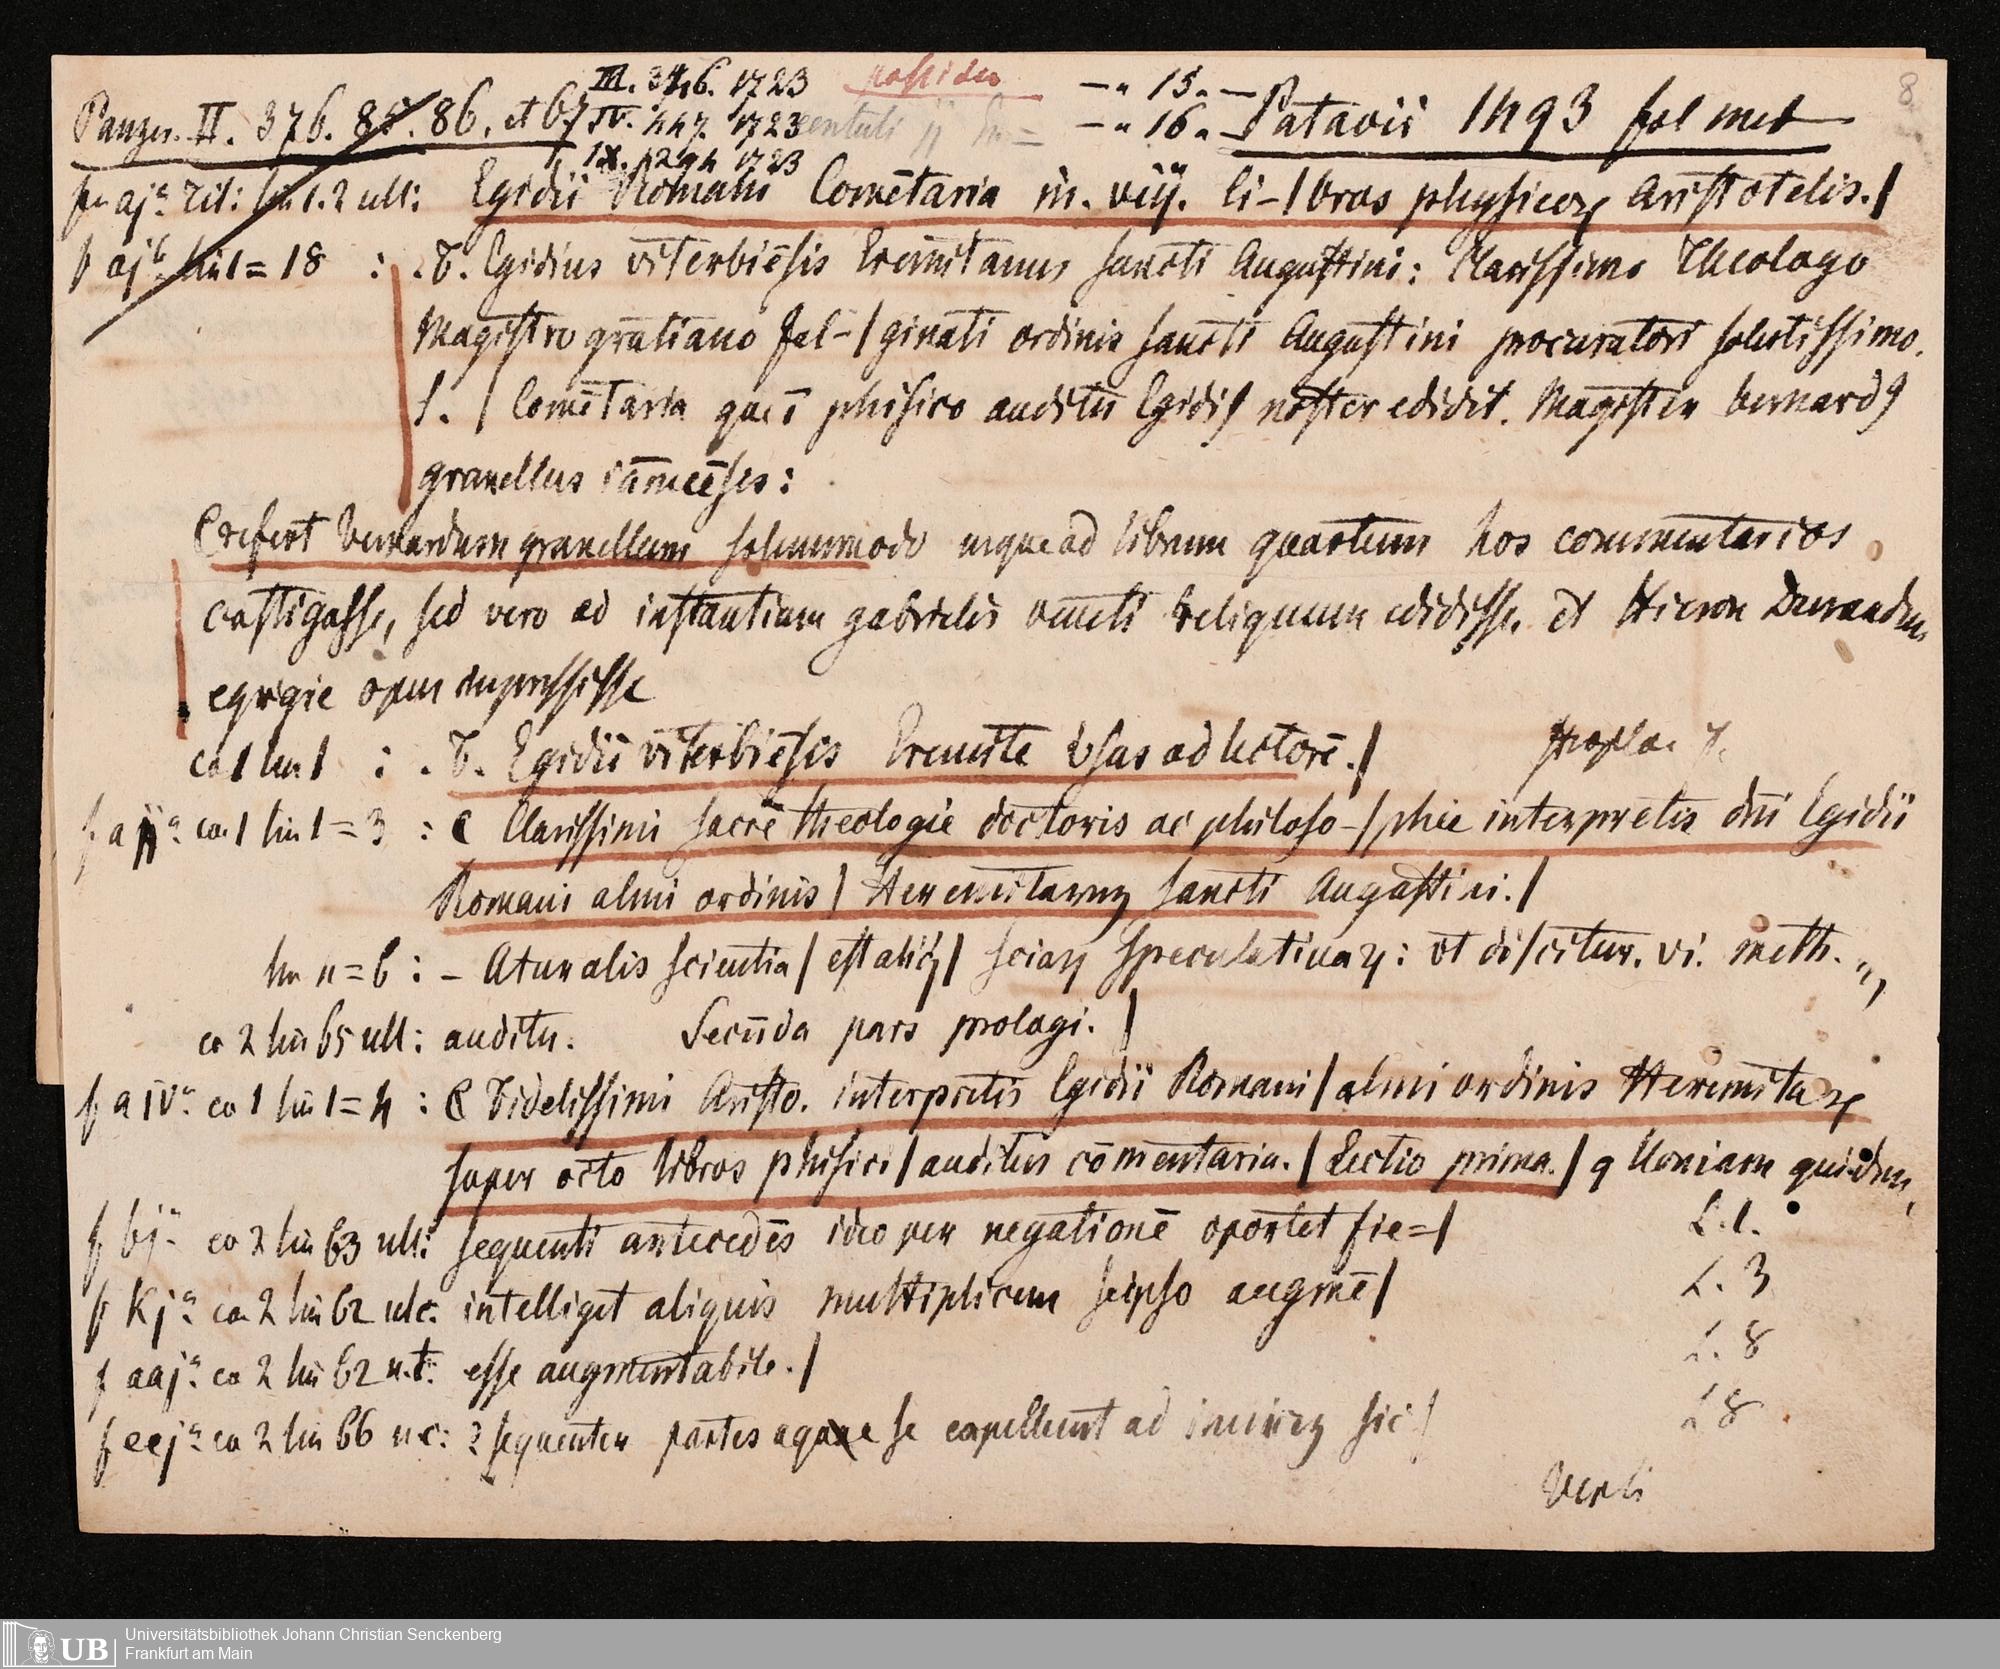 III. 346. 1723 possideo —" 15. —
Panzer. II. 376. 85. 86. et 67 IV. 447. 1723 —" 16. — Patavii 1493 fol met
IX. 294 1723
8
f aj.a Tit: lin 1. 2 ult: Egidii Romani Comētaria in. viij. li-/bros physicoꝝ Aristotelis./
f ajb. lin 1=18 : .F. Egidius viterbiēsis Eremitanus sancti Augustini: Clarissimo Theologo
Magistro gratiano ful-/ginati ordinis sancti Augustini procuratori
s. / Comētaria quae ī phisico auditu Egidiꝰ noster edidit. Magister bernardꝰ
granellus :
C refert bernardum granellum solummodo usque ad librum quartum hos commentarios
castigasse, sed vero ad instantiam gabrielis veneti reliquum edidisse. et Hieron Durandum
egregie opus impressisse
co 1 lin 1 : .F. Egidii viterbiēsis Eremite ad lectorē./
f a ija co. 1 lin 1=3 : C Clarissimi sacre theologie doctoris ac philoso-/phie interpretis dn̄i Egidii
Romani almi ordinis / Heremitaruꝫ sancti Augustini./
lin 4=6 : – Aturalis scientia / est aliq̄ / sciaꝝ speculatiuaꝝ: vt di/citur. vi. meth. ",
co 2 lin 65 ult: auditu. Secūda pars prologi. /
f a iva. co 1 lin 1=4 : C Fidelissimi Aristo. interpretis Egidii Romani / almi ordinis Heremitaꝝ
super octo libros phisici / auditus cōmentaria. / Lectio prima. / q Uoniam quidem,
f bja co 2 lin 63 ult: sequenti antecedēs ideo per negationē oportet fie=/ L. 1.
f Kja co. 2 lin 62 ult: intelliget aliquis multiplicem seipso augmē/ L. 3
f aaja. co 2 lin 62 u.t: esse augmentabile./ L. 8
f eeja co 2 lin 66 u.t: sequenter partes aquae se expellunt ad inuiceꝫ sic / L 8
Verti
UB Universitätsbibliothek Johann Christian Senckenberg
Frankfurt am Main